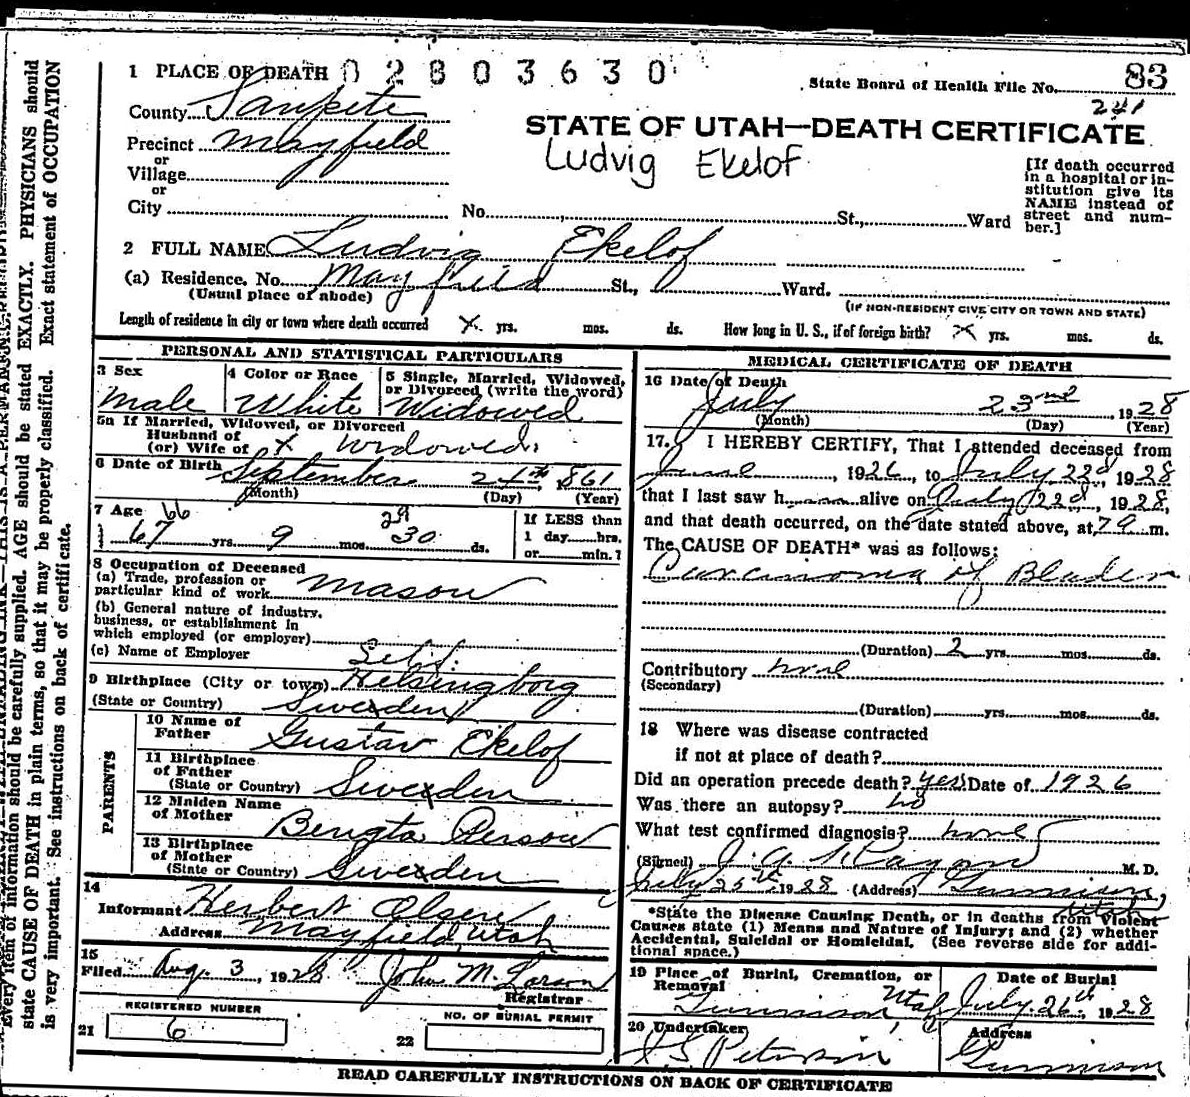 1 PLACE OF DEATH 02803630
State Board of Health File No. 83
241
County Sanpete
STATE OF UTAH—DEATH CERTIFICATE
Precinct Mayfield
Ludvig Ekelof
or
Village
or
City No. St., Ward
[If death occurred
in a hospital or in-
stitution give its
NAME instead of
street and num-
ber.]
2 FULL NAME Ludvig Ekelof
(a) Residence. No. Mayfield St., Ward.
(Usual place of abode)
(IF NON-RESIDENT GIVE CITY OR TOWN AND STATE)
Length of residence in city or town where death occurred X yrs. mos. ds. How long in U. S., if of foreign birth? X yrs. mos. ds.
PERSONAL AND STATISTICAL PARTICULARS
3 Sex
Male
4 Color or Race
White
5 Single, Married, Widowed,
or Divorced (write the word)
Widowed
5a If Married, Widowed, or Divorced
Husband of
(or) Wife of X Widowed
6 Date of Birth September 24th, 861
(Month) (Day) (Year)
7 Age 66 29
67 yrs. 9 mos. 30 ds.
If LESS than
1 day hrs.
or min.?
8 Occupation of Deceased
(a) Trade, profession or
particular kind of work mason
(b) General nature of industry,
business, or establishment in
which employed (or employer)
(c) Name of Employer Self.
9 Birthplace (City or town) Helsingborg
(State or Country) Sweden
PARENTS
10 Name of
Father Gustav Ekelof
11 Birthplace
of Father
(State or Country) Sweden
12 Maiden Name
of Mother Bengta Person
13 Birthplace
of Mother
(State or Country) Sweden
14
Informant Herbert Olsen
Address Mayfield, Utah
15
Filed Aug. 3, 1928 John M. Larson
Registrar
REGISTERED NUMBER
21 6
NO. OF BURIAL PERMIT
22
MEDICAL CERTIFICATE OF DEATH
16 Date of Death
July 23rd, 1928
(Month) (Day) (Year)
17. I HEREBY CERTIFY, That I attended deceased from
June, 1926, to July 22d, 1928
that I last saw h alive on July 22d, 1928,
and that death occurred, on the date stated above, at m.
The CAUSE OF DEATH* was as follows:
Carcinoma of Blader
(Duration) 2 yrs. mos. ds.
Contributory none
(Secondary)
(Duration) yrs. mos. ds.
18 Where was disease contracted
if not at place of death?
Did an operation precede death? yes Date of 1926
Was there an autopsy? no
What test confirmed diagnosis? none
(Signed) M. D.
July 25th 1928 (Address) Gunnison,
Utah
*State the Disease Causing Death, or in deaths from Violent
Causes state (1) Means and Nature of Injury; and (2) whether
Accidental, Suicidal or Homicidal. (See reverse side for addi-
tional space.)
19 Place of Burial, Cremation, or
Removal
Gunnison, Utah
Date of Burial
July 26th 1928
20 Undertaker
Peterson
Address
Gunnison
READ CAREFULLY INSTRUCTIONS ON BACK OF CERTIFICATE
Every item of information should be carefully supplied. AGE should be stated EXACTLY. PHYSICIANS should
state CAUSE OF DEATH in plain terms, so that it may be properly classified. Exact statement of OCCUPATION
is very important. See instructions on back of certificate.